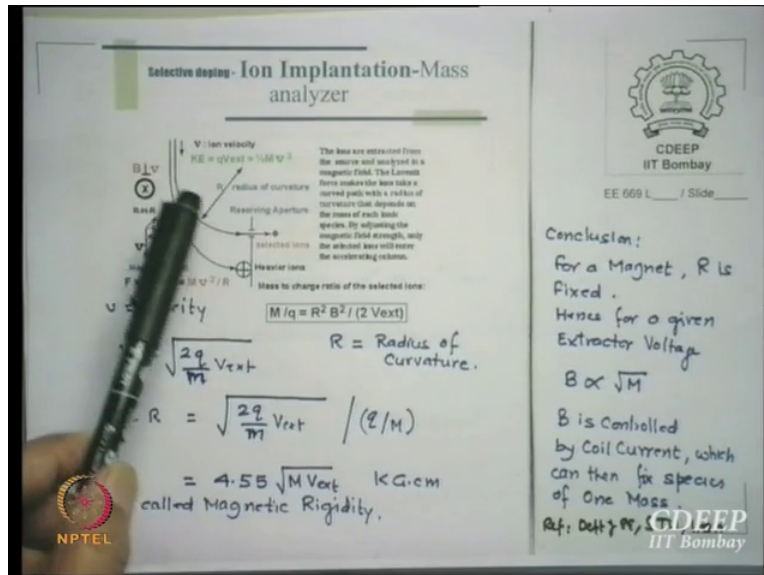 Selective doping - Ion Implantation-Mass
analyzer
V : Ion velocity
KE = qVext = ½M υ²
B⊥v
X
R radius of curvature
RHR
Resolving Aperture
selected ions
Heavier ions
M υ²/R
The ions are extracted from
the source and analyzed in a
magnetic field. The Lorentz
force makes the ions take a
curved path with a radius of
curvature that depends on
the mass of each ionic
species. By adjusting the
magnetic field strength, only
the selected ions will enter
the accelerating column.
Mass to charge ratio of the selected ions:
M /q = R² B² / (2 Vext)
√(2q/m Vext)
R = Radius of
Curvature.
R = √(2q/m Vext) / (q/M)
= 4.55 √(M Vext) KG.cm
called Magnetic Rigidity.
NPTEL
CDEEP
IIT Bombay
EE 669 L____ / Slide____
Conclusion:
For a Magnet, R is
Fixed.
Hence for a given
Extractor Voltage
B ∝ √M
B is Controlled
by Coil Current, which
can then fix species
of One Mass.
Ref:
CDEEP
IIT Bombay